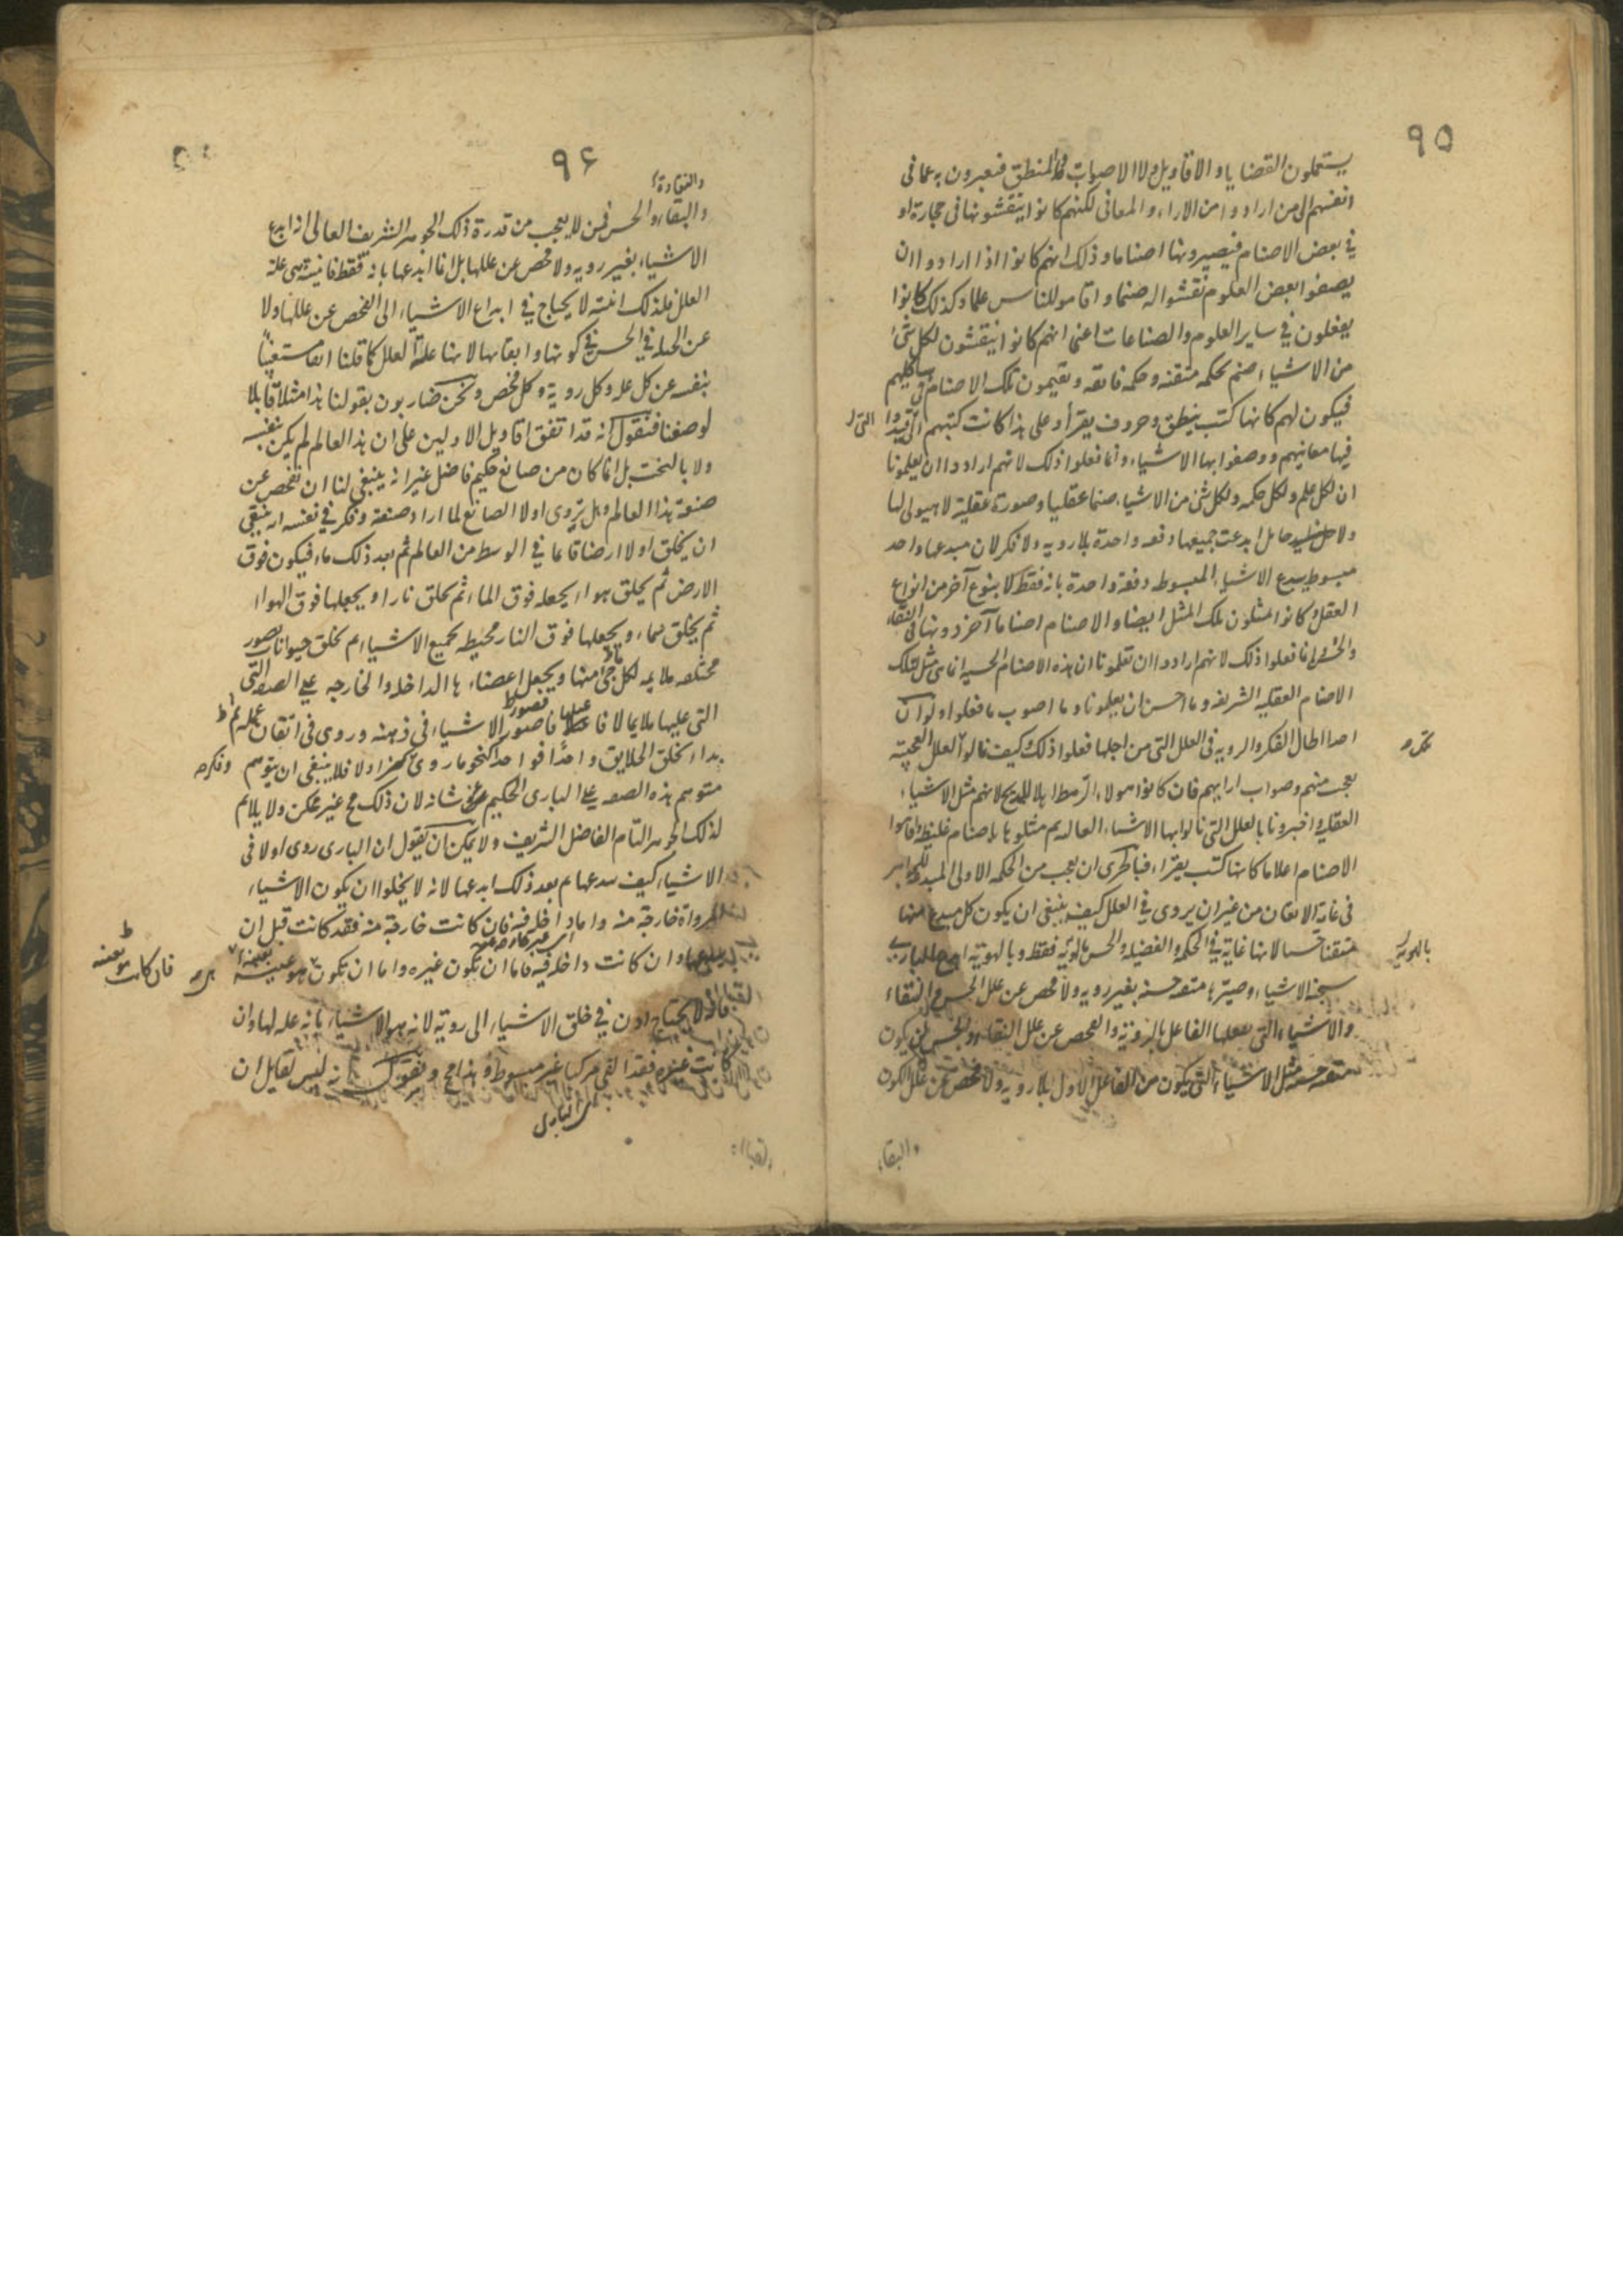 ٩٥
يستعملون القضايا والاقاويل ولا الاصوات ولا المنطق فيعبرون به عما فى
انفسهم الى من ارادوا من الاراء والمعانى لكنهم كانوا ينقشونها فى حجارة او
فى بعض الاصنام فيصيرونها اصناما وذلك انهم كانوا اذا ارادوا ان
يصفوا بعض العلوم نقشوا له صنما واقاموا للناس علما وكذلك كانوا
يفعلون فى ساير العلوم والصناعات اعنى انهم كانوا ينقشون لكل شىء
من الاشياء صنم بحكمه متقنه وحكمه فائقه ويقيمون تلك الاصنام فى هياكلهم
فيكون لهم كانها كتب ينطق وحروف يقرأ وعلى هذا كانت كتبهم التى قيدوا
فيها معانيهم ووصفوا بها الاشياء وانما فعلوا ذلك لانهم ارادوا ان يعلمونا
ان لكل علم ولكل حكمه ولكل شىء من الاشياء صنما عقليا وصورة عقلية لا هيولى لها
ولا حامل بل ابدعت جميعها دفعه واحدة بلا رويه ولا فكر لان مبدعها واحد
مبسوط يبدع الاشياء المبسوطه دفعة واحدة بانه فقط لا بنوع آخر من انواع
العقل وكانوا يمثلون تلك المثل ايضا والاصنام اصناما آخر دونها فى النقاء
والحسن وانما فعلوا ذلك لانهم ارادوا ان تعلمونا ان هذه الاصنام الحسيه انما هى مثل لتلك
الاصنام العقليه الشريفه وما احسن ان يعلمونا وما اصوب ما فعلوا ولو ان
احدا اطال الفكر والرويه فى العلل التى من اجلها فعلوا ذلك وكيف نالوا العلل العجيبة
يعجب منهم وصواب ارايهم فان كانوا هولاء الرهط اهلا للمديح لانهم مثل الاشياء
العقليه واخبرونا بالعلل التى نالوا بها الاشياء العاليه ثم مثلوها باصنام غليظه واقاموا
الاصنام اعلاما كانها كتب يقرا فبالحرى ان يعجب من الحكمه الاولى المبدعه للجواهر
فى غاية الاتقان من غير ان يروى فى العلل كيف ينبغى ان يكون كل مبدع منها
متقنا حسنا لانها غاية فى الحكمه والفضيله والحسن فقط وبالهوية ابدع البارى
سبحنه الاشياء وصيرها متقنه حسنه بغير رويه ولا فحص عن علل الحسن والنقاء
والاشياء التى يفعلها الفاعل بالروية والفحص عن علل النقاء والحسن لن يكون
متقنه حسنه مثل الاشياء التى يكون من الفاعل الاول بلا رويه ولا فحص عن علل الكون
والبقاء
بالهوية
٩۶
والنقاوة
والبقاء والحسن فمن لا يعجب من قدرة ذلك الجوهر الشريف العالى انه ابدع
الاشياء بغير رويه ولا فحص عن عللها بل انما ابدعها بانه فقط فانيته هى علة
العلل فلذلك انيته لا يحتاج فى ابداع الاشياء الى الفحص عن عللها ولا
عن الحيله فى الحسن فى كونها وابقائها لانها علة العلل كما قلنا انفا مستغنيا
بنفسه عن كل عله وكل روية وكل فحص ونحن ضاربون بقولنا هذا مثلا قابلا
لوصفنا فنقول انه قد اتفق اقاويل الاولين على ان هذا العالم لم يكن بنفسه
ولا بالبخت بل انما كان من صانع حكيم فاضل غير انه ينبغى لنا ان نفحص عن
صنعة هذا العالم وهل تروى اولا الصانع لما اراد صنعته وفكر فى نفسه انه ينبغى
ان يخلق اولا ارضا قائما فى الوسط من العالم ثم بعد ذلك ماء فيكون فوق
الارض ثم يخلق هواء يجعله فوق الماء ثم يخلق نارا ويجعلها فوق الهواء
ثم يخلق سماء ويجعلها فوق النار محيطه بجميع الاشياء ثم يخلق حيوانات بصور
مختلفه ملايمه لكل حى منها ويجعل اعضاءها الداخله والخارجه على الصفه التى
التى عليها ملايما لافاعيلها فصور الاشياء فى ذهنه وروى فى اتقان عمله ثم
بدا بخلق الخلايق واحدا فواحدا كنحو ما روى وفكر اولا فلا ينبغى ان يتوهم
متوهم هذه الصفه على البارى الحكيم عز شانه لان ذلك مح غير ممكن ولا يلايم
لذلك الجوهر التام الفاضل الشريف ولا يمكن ان يقول ان البارى روى اولا فى
الاشياء كيف يبدعها ثم بعد ذلك ابدعها لانه لا يخلوا ان يكون الاشياء
المرواة خارجة منه واما داخله فيه فان كانت خارجة منه فقد كانت قبل ان
يبدعها وان كانت داخله فيه فاما ان تكون غيره واما ان تكون هو بعينه
فانه لا يحتاج اذن فى خلق الاشياء الى روية لانه هو الاشياء بانه عله لها وان
كانت غيره فقد الفى مركبا غير مبسوط وهذا مح ونقول انه ليس لقايل ان
البارى